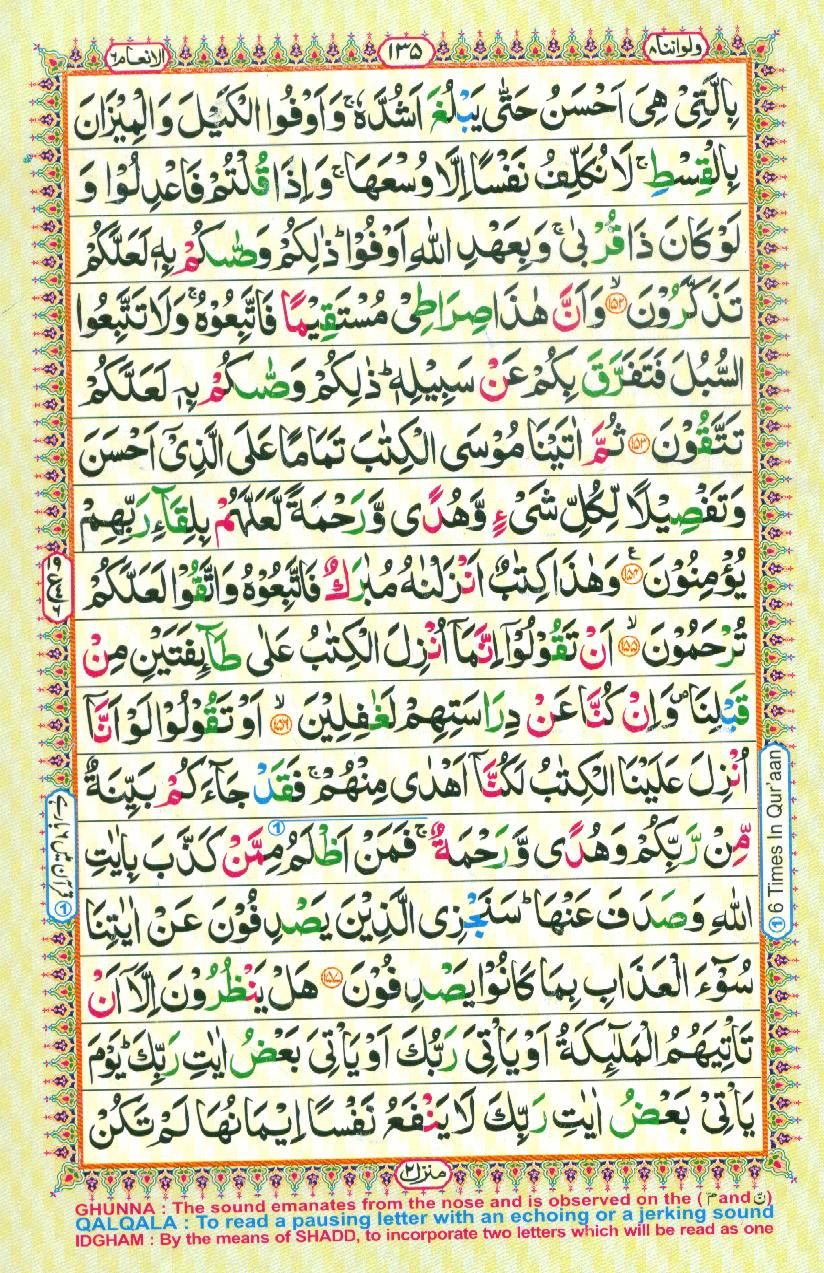 الانعام ٦
١٣٥
ولواننا ٨
بِالَّتِیْ هِیَ اَحْسَنُ حَتّٰی یَبْلُغَ اَشُدَّهٗ ۚ وَ اَوْفُوا الْكَیْلَ وَ الْمِیْزَانَ
بِالْقِسْطِ ۚ لَا نُكَلِّفُ نَفْسًا اِلَّا وُسْعَهَا ۚ وَ اِذَا قُلْتُمْ فَاعْدِلُوْا وَ
لَوْ كَانَ ذَا قُرْبٰی ۚ وَ بِعَهْدِ اللّٰهِ اَوْفُوْا ؕ ذٰلِكُمْ وَصّٰىكُمْ بِهٖ لَعَلَّكُمْ
تَذَكَّرُوْنَ ۙ﴿۱۵۲﴾ وَ اَنَّ هٰذَا صِرَاطِیْ مُسْتَقِیْمًا فَاتَّبِعُوْهُ ۚ وَ لَا تَتَّبِعُوا
السُّبُلَ فَتَفَرَّقَ بِكُمْ عَنْ سَبِیْلِهٖ ؕ ذٰلِكُمْ وَصّٰىكُمْ بِهٖ لَعَلَّكُمْ
تَتَّقُوْنَ ﴿۱۵۳﴾ ثُمَّ اٰتَیْنَا مُوْسَی الْكِتٰبَ تَمَامًا عَلَی الَّذِیْۤ اَحْسَنَ
وَ تَفْصِیْلًا لِّكُلِّ شَیْءٍ وَّ هُدًی وَّ رَحْمَةً لَّعَلَّهُمْ بِلِقَآءِ رَبِّهِمْ
یُؤْمِنُوْنَ ﴿۱۵۴﴾ ع وَ هٰذَا كِتٰبٌ اَنْزَلْنٰهُ مُبٰرَكٌ فَاتَّبِعُوْهُ وَ اتَّقُوْا لَعَلَّكُمْ
تُرْحَمُوْنَ ۙ﴿۱۵۵﴾ اَنْ تَقُوْلُوْۤا اِنَّمَاۤ اُنْزِلَ الْكِتٰبُ عَلٰی طَآىِٕفَتَیْنِ مِنْ
قَبْلِنَا ۪ وَ اِنْ كُنَّا عَنْ دِرَاسَتِهِمْ لَغٰفِلِیْنَ ۙ﴿۱۵۶﴾ اَوْ تَقُوْلُوْا لَوْ اَنَّاۤ
اُنْزِلَ عَلَیْنَا الْكِتٰبُ لَكُنَّاۤ اَهْدٰی مِنْهُمْ ۚ فَقَدْ جَآءَكُمْ بَیِّنَةٌ
مِّنْ رَّبِّكُمْ وَ هُدًی وَّ رَحْمَةٌ ۚ ① فَمَنْ اَظْلَمُ مِمَّنْ كَذَّبَ بِاٰیٰتِ
اللّٰهِ وَ صَدَفَ عَنْهَا ؕ سَنَجْزِی الَّذِیْنَ یَصْدِفُوْنَ عَنْ اٰیٰتِنَا
سُوْٓءَ الْعَذَابِ بِمَا كَانُوْا یَصْدِفُوْنَ ﴿۱۵۷﴾ هَلْ یَنْظُرُوْنَ اِلَّاۤ اَنْ
تَاْتِیَهُمُ الْمَلٰٓىِٕكَةُ اَوْ یَاْتِیَ رَبُّكَ اَوْ یَاْتِیَ بَعْضُ اٰیٰتِ رَبِّكَ ؕ یَوْمَ
یَاْتِیْ بَعْضُ اٰیٰتِ رَبِّكَ لَا یَنْفَعُ نَفْسًا اِیْمَانُهَا لَمْ تَكُنْ
① 6 Times In Qur'aan
منزل ٢
GHUNNA : The sound emanates from the nose and is observed on the ( مّ and نّ )
QALQALA : To read a pausing letter with an echoing or a jerking sound
IDGHAM : By the means of SHADD, to incorporate two letters which will be read as one